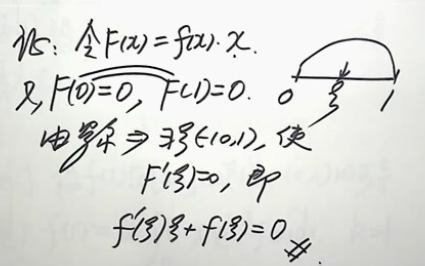 证: 令F(x)=f(x)·x.
又, F(0)=0, F(1)=0.
0 ξ 1
由罗尔⇒∃ξ∈(0,1), 使
F'(ξ)=0, 即
f'(ξ)ξ+f(ξ)=0 #.